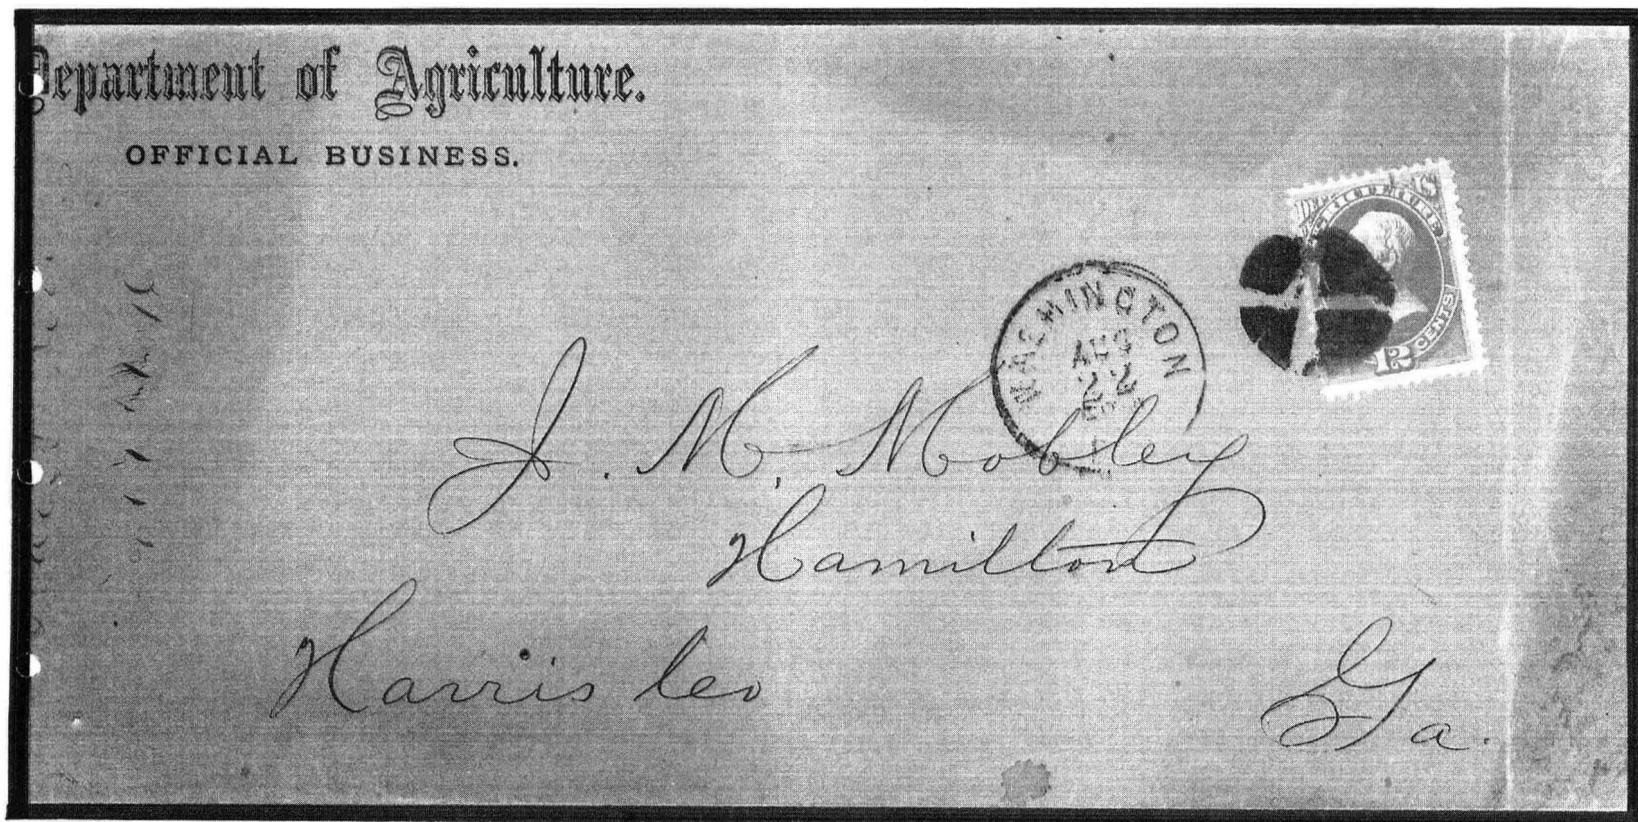 Department of Agriculture.
OFFICIAL BUSINESS.
WASHINGTON
AUG
22
AGRICULTURE
12 CENTS
J. M. Mobley
Hamilton
Harris Co
Ga.